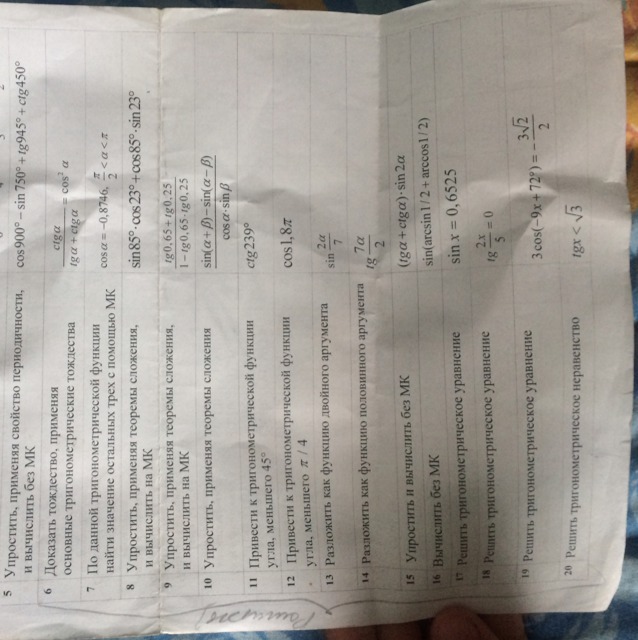 5 Упростить, применяя свойство периодичности, и вычислить без МК cos900° − sin750° + tg945° + ctg450°
6 Доказать тождество, применяя основные тригонометрические тождества ctgα / (tgα + ctgα) = cos² α
7 По данной тригонометрической функции найти значение остальных трех с помощью МК cosα = −0,8746, π/2 < α < π
8 Упростить, применяя теоремы сложения, и вычислить на МК sin85° · cos23° + cos85° · sin23°
9 Упростить, применяя теоремы сложения, и вычислить на МК (tg0,65 + tg0,25) / (1 − tg0,65 · tg0,25)
10 Упростить, применяя теоремы сложения (sin(α + β) − sin(α − β)) / (cosα · sinβ)
11 Привести к тригонометрической функции угла, меньшего 45° ctg239°
12 Привести к тригонометрической функции угла, меньшего π / 4 cos1,8π
13 Разложить как функцию двойного аргумента sin 2α/7
14 Разложить как функцию половинного аргумента tg 7α/2
15 Упростить и вычислить без МК (tgα + ctgα) · sin2α
16 Вычислить без МК sin(arcsin1/2 + arccos1/2)
17 Решить тригонометрическое уравнение sin x = 0,6525
18 Решить тригонометрическое уравнение tg 2x/5 = 0
19 Решить тригонометрическое уравнение 3cos(−9x + 72°) = − 3√2/2
20 Решить тригонометрическое неравенство tgx < √3